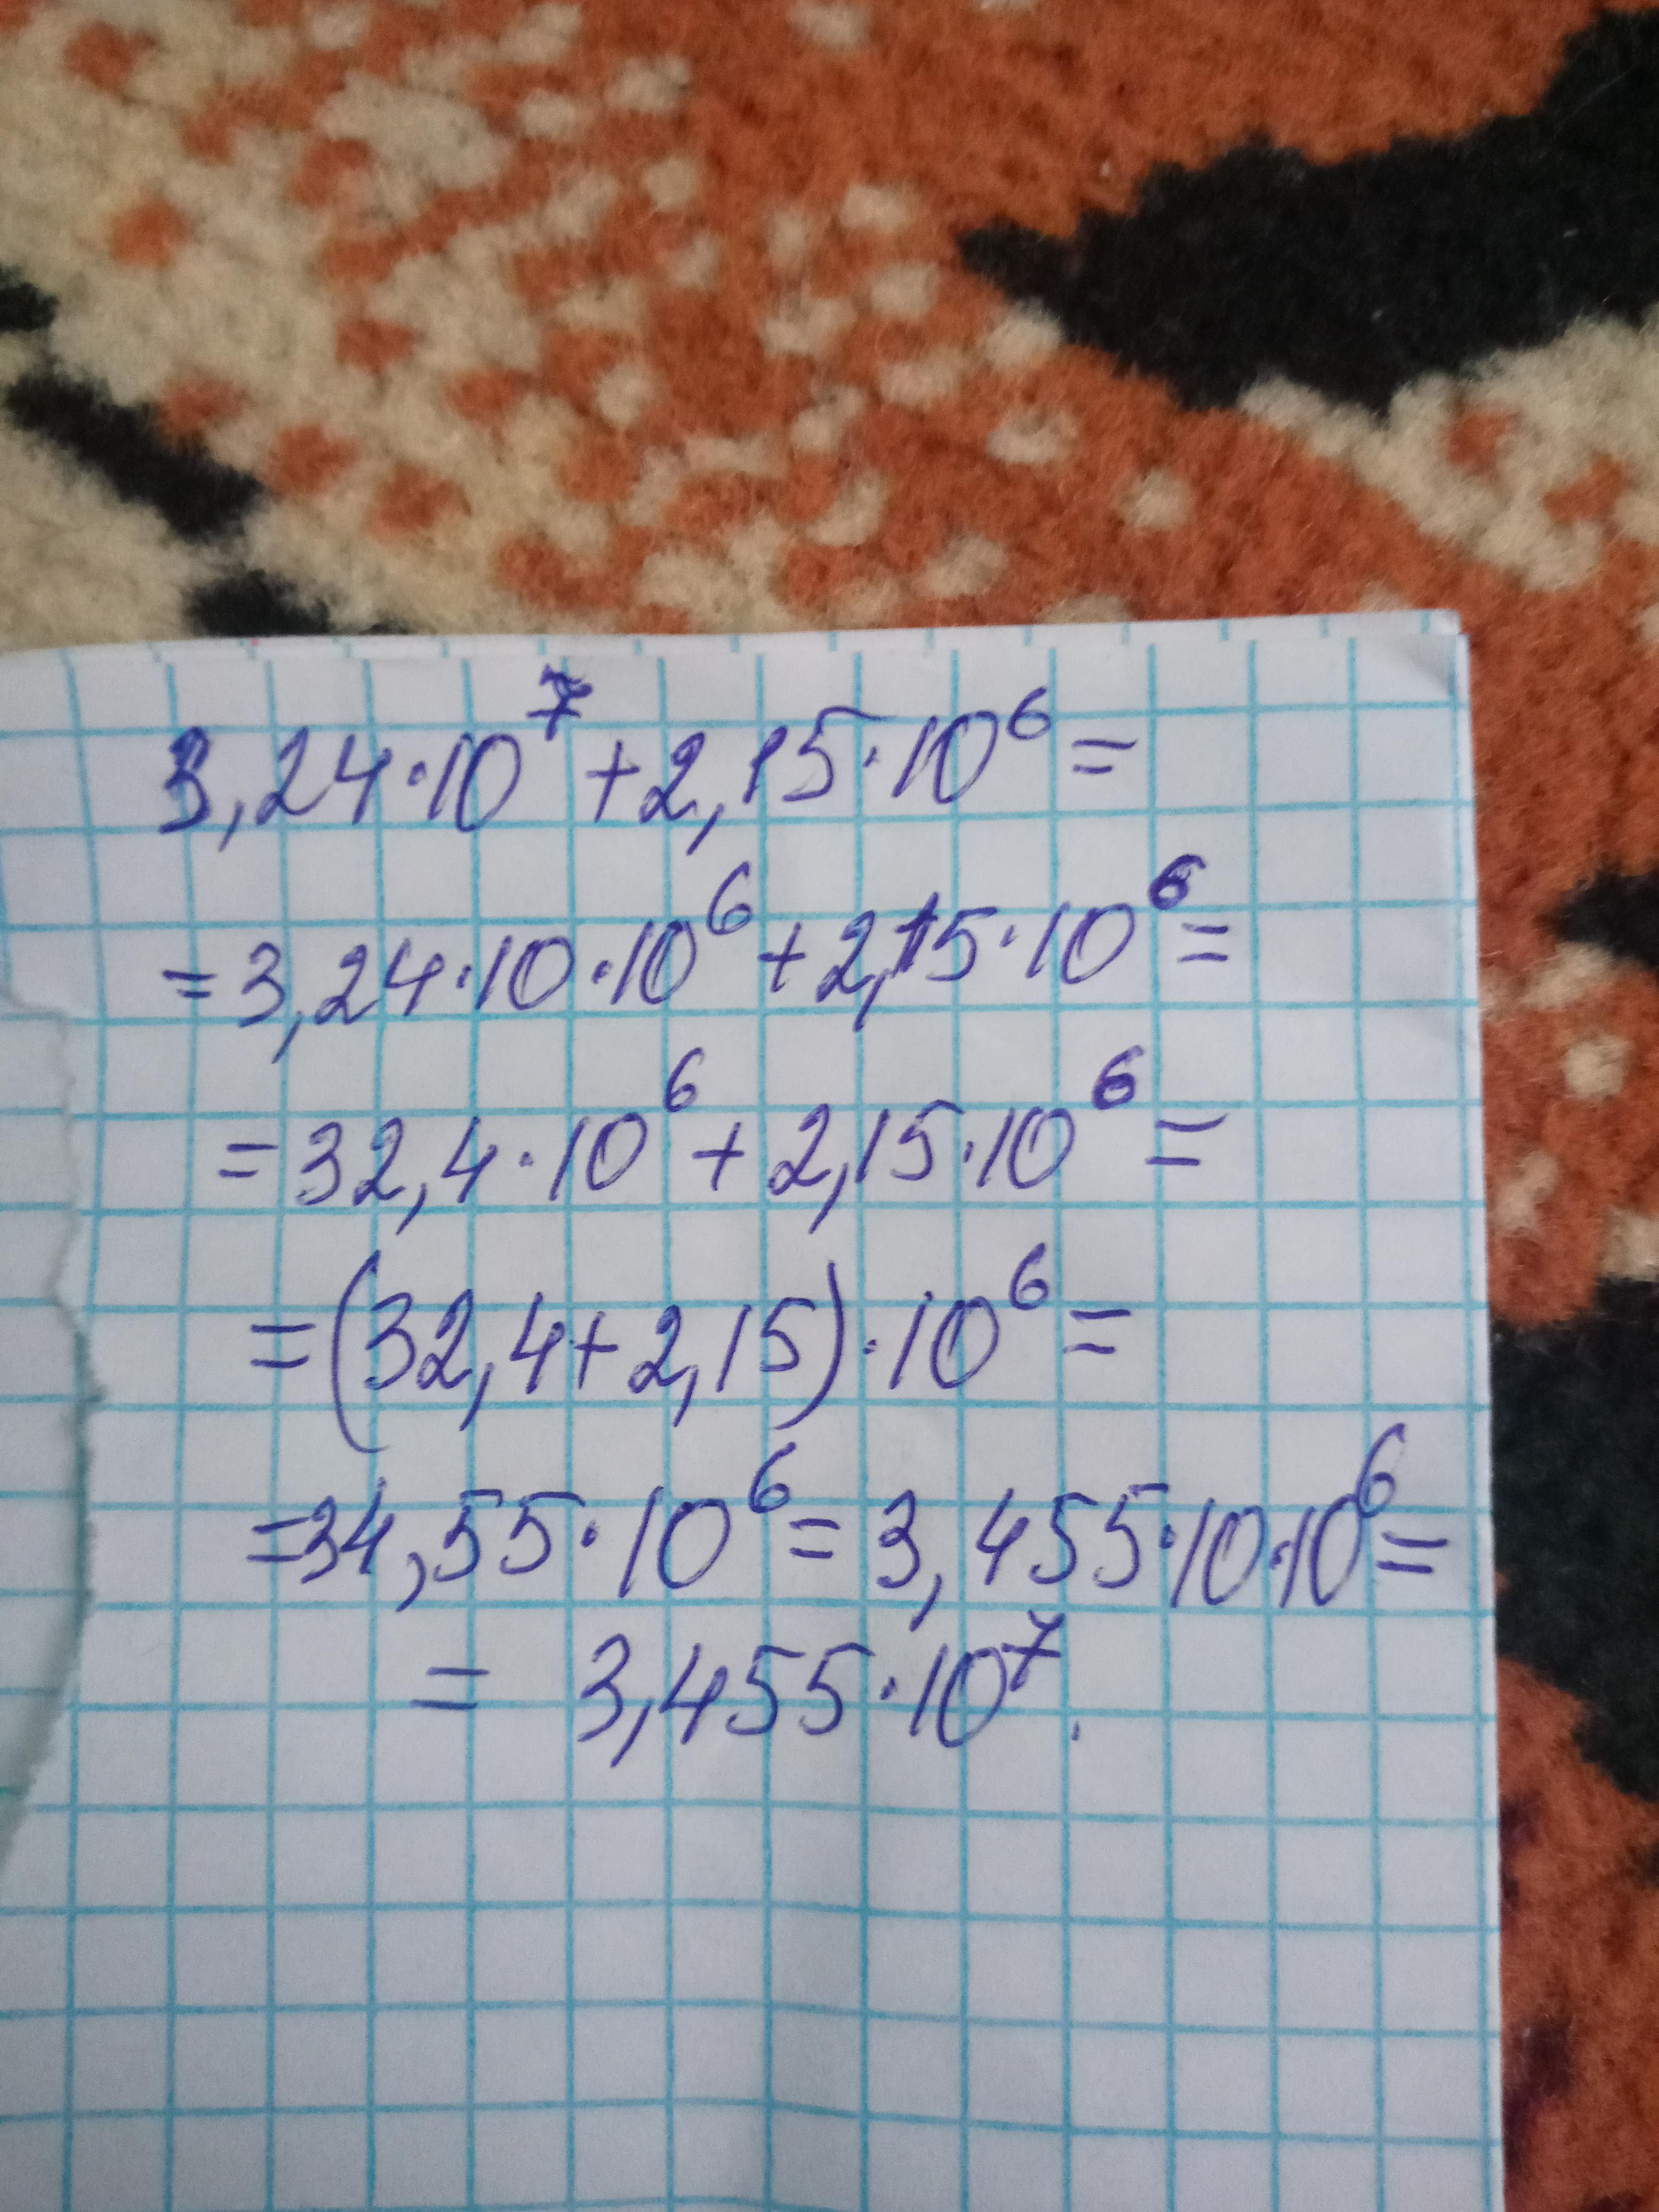 3,24·10⁷+2,15·10⁶=
=3,24·10·10⁶+2,15·10⁶=
=32,4·10⁶+2,15·10⁶=
=(32,4+2,15)·10⁶=
=34,55·10⁶=3,455·10·10⁶=
= 3,455·10⁷.